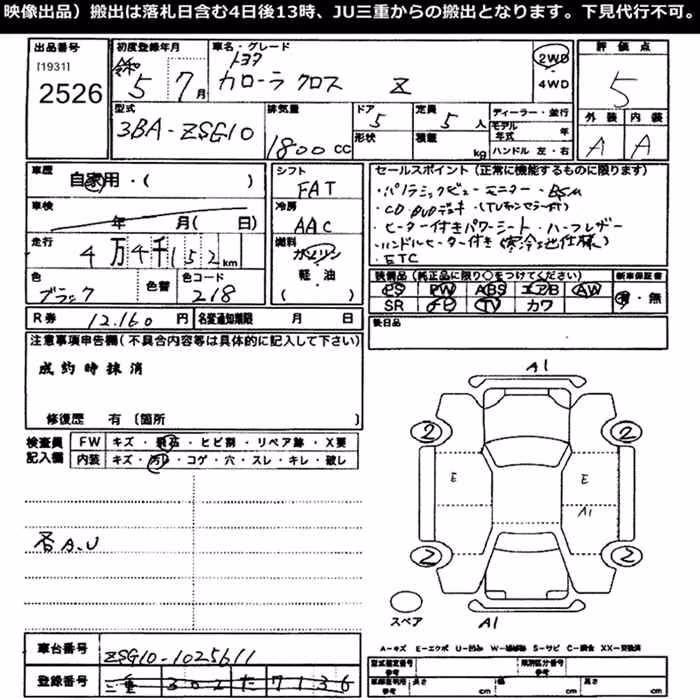 映像出品）搬出は落札日含む4日後13時、JU三重からの搬出となります。下見代行不可。
出品番号
[1931]
2526
初度登録年月
令和 5年 7月
車名・グレード
トヨタ
カローラクロス Z
2WD
4WD
評価点
5
外装 内装
A A
型式
3BA-ZSG10
排気量
1800cc
ドア
5
形状
定員
5人
積載
kg
ディーラー・並行
モデル年式 年
ハンドル 左・右
車歴
自家用・( )
車検
年 月( 日)
走行
4万4千152km
色
ブラック
色替
色コード
218
シフト
FAT
冷房
AAC
燃料
ガソリン
軽・油
( )
セールスポイント（正常に機能するものに限ります）
・パノラミックビューモニター・BSM
・CD・DVDデッキ（TVキャンセラー付）
・ヒーター付きパワーシート・ハーフレザー
・ハンドルヒーター付き（寒冷地仕様）
・ETC
装備品（純正品に限り○をつけてください）
PS PW ABS エアB AW
SR ナビ TV カワ
新車保証書
有・無
後日品
R券 12,160円
名変通知期限 月 日
注意事項申告欄（不具合内容等は具体的に記入して下さい）
成約時抹消
修復歴 有〔箇所 〕
検査員記入欄
FW キズ・飛石・ヒビ割・リペア跡・X要
内装 キズ・汚レ・コゲ・穴・スレ・キレ・破レ
各A.U
A1
2 2
E E
A1
2 2
スペア
A1
A-キズ E-エクボ U-凹み W-補修跡 S-サビ C-腐食 XX-交換済
車台番号
ZSG10-1025611
登録番号
三重 302 た 7136
型式指定番号
参考
類別区分番号
参考
車両制限用
参考
長さ cm
幅 cm
高さ cm